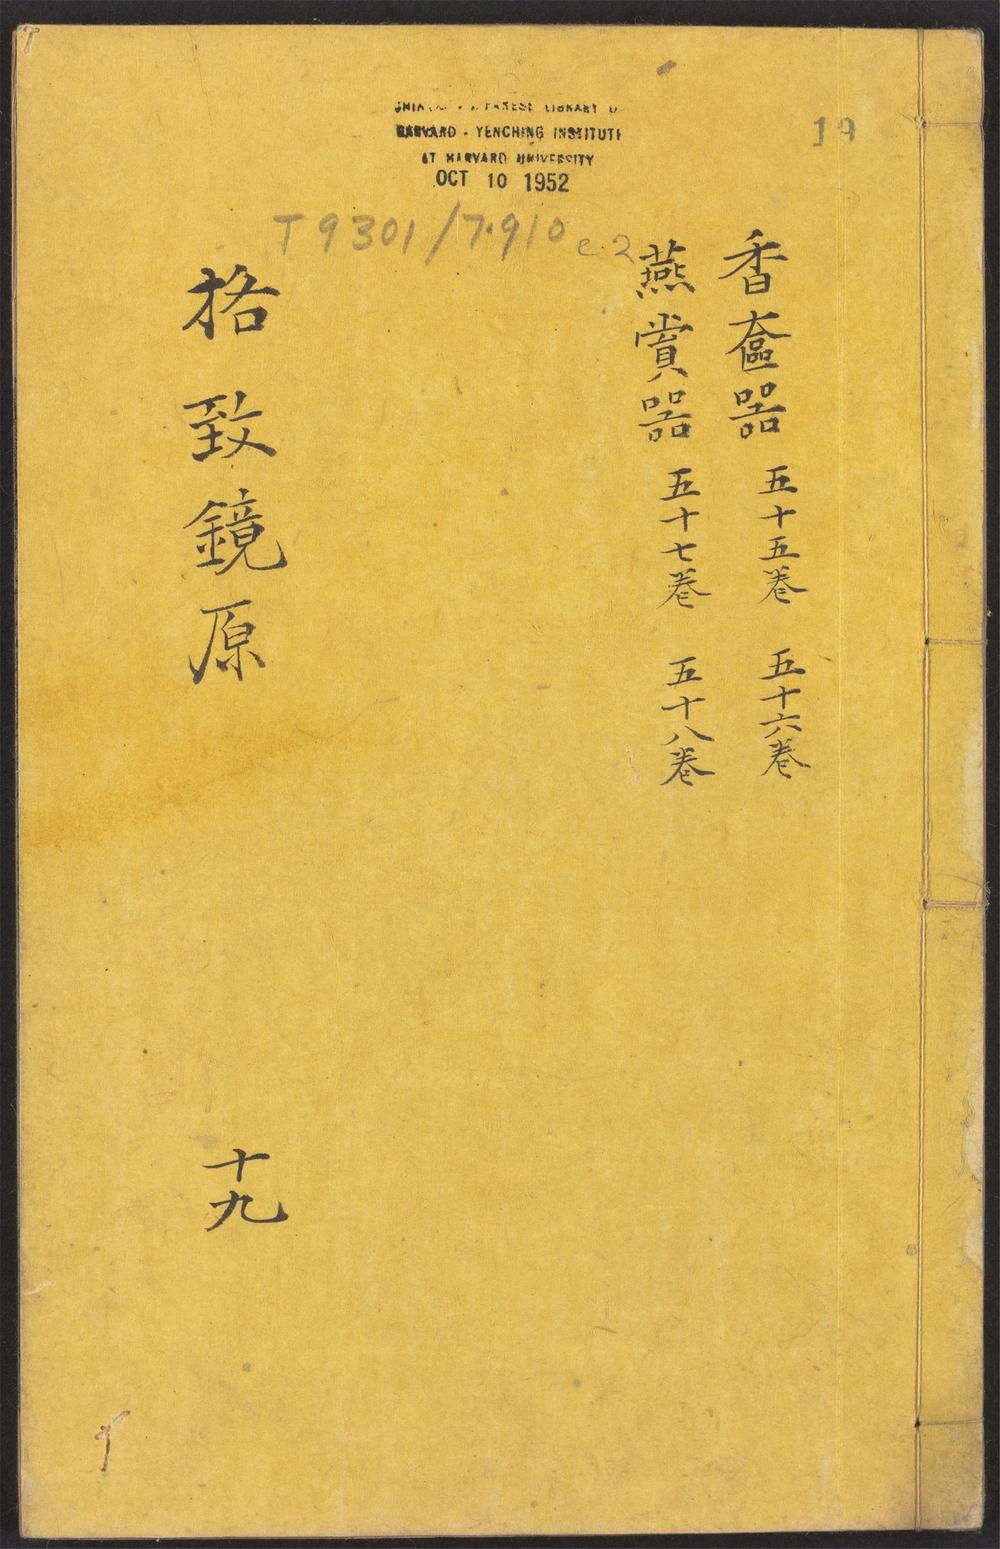 19
HARVARD - YENCHING INSTITUTE
AT HARVARD UNIVERSITY
OCT 10 1952
T9301/7.910 c.2
香奩器 五十五卷 五十六卷
燕賞器 五十七卷 五十八卷
格致鏡原
十九